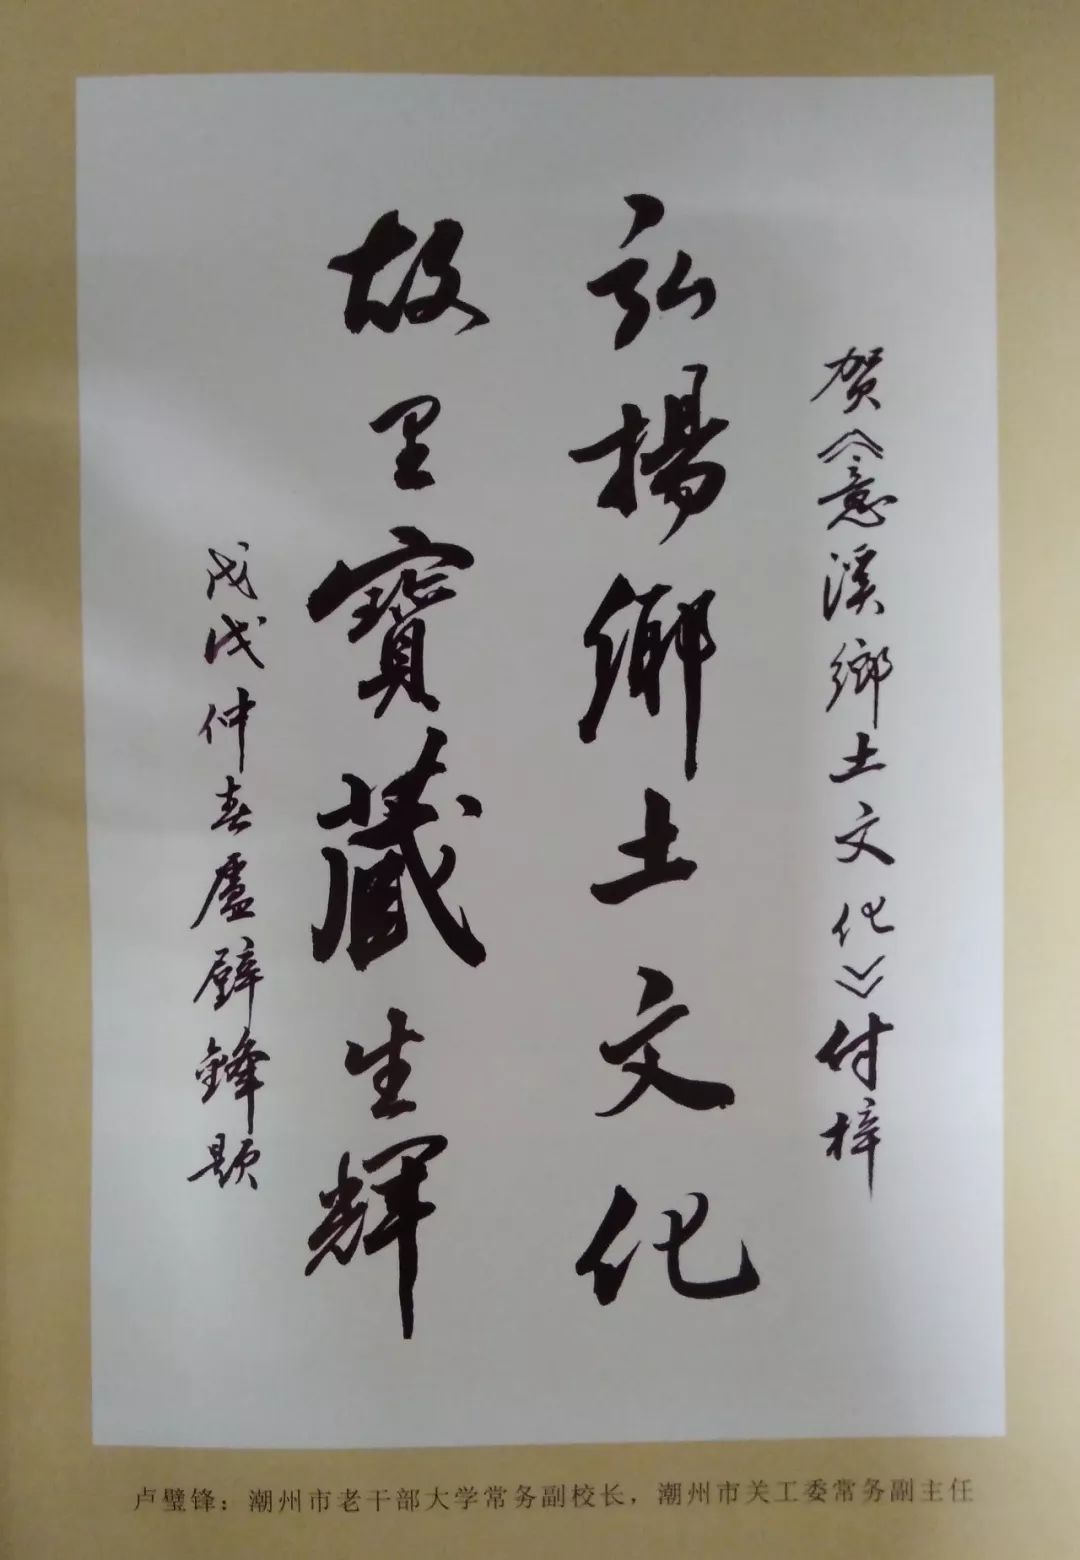 贺《意溪鄉土文化》付梓
弘揚鄉土文化
故里寶藏生輝
戊戌仲春盧璧鋒題
卢璧锋：潮州市老干部大学常务副校长，潮州市关工委常务副主任